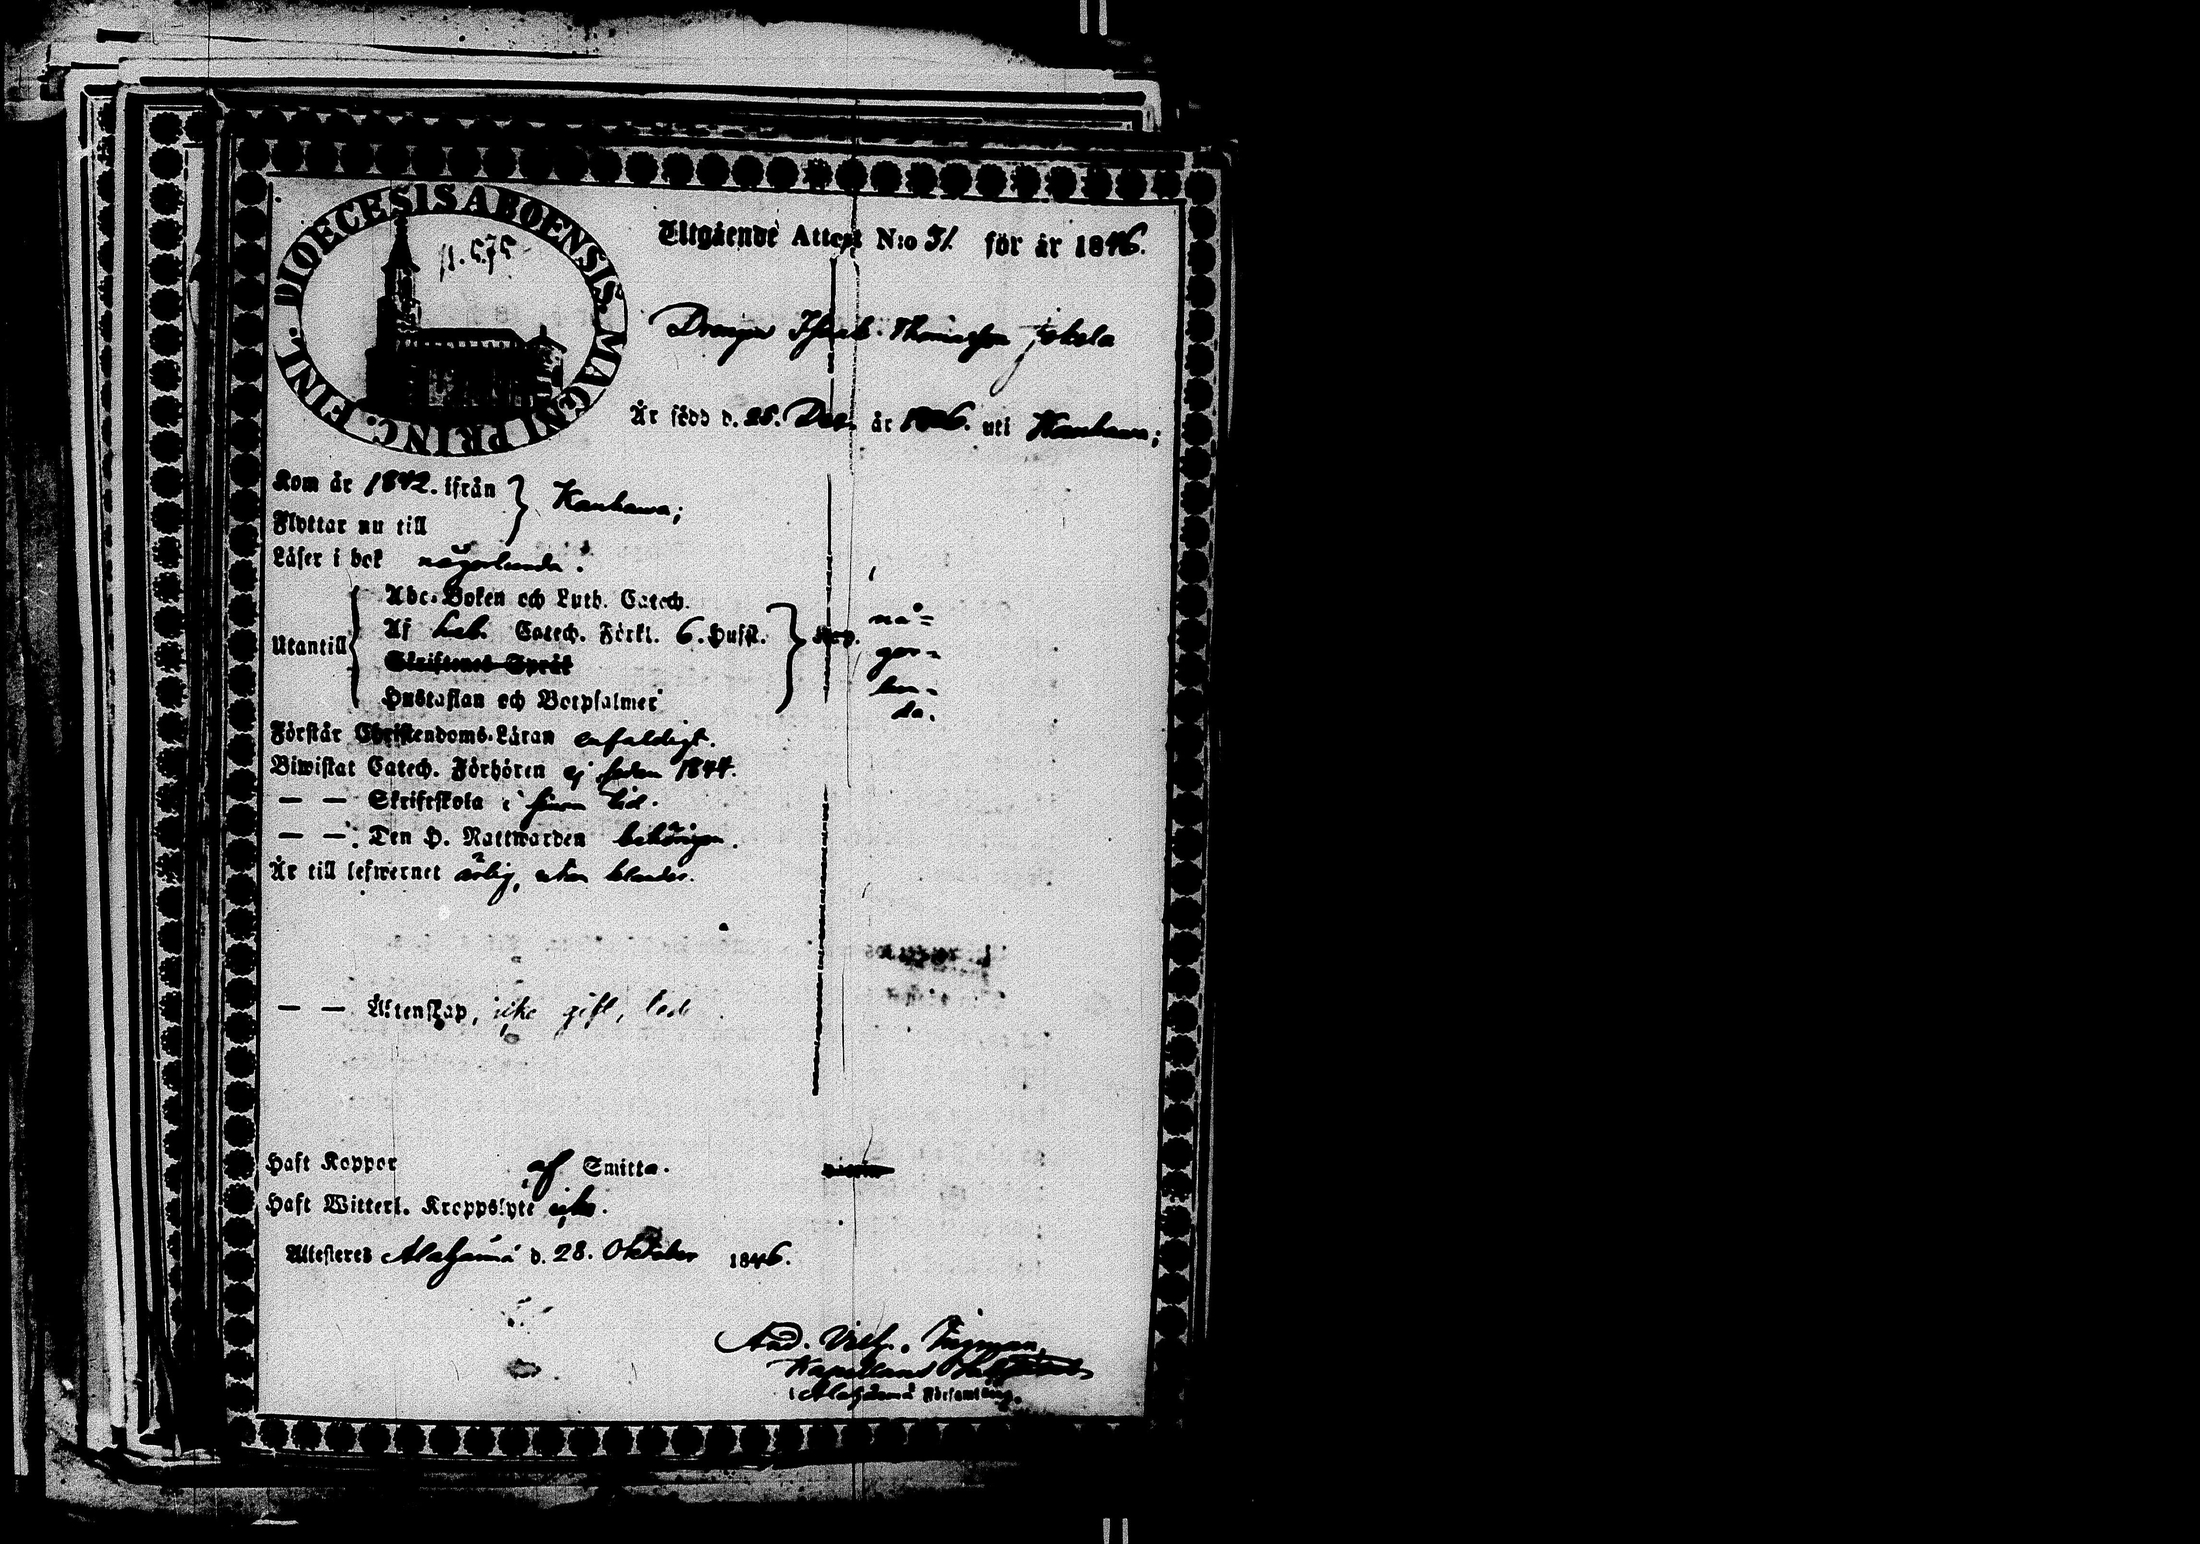 DIOECESIS ABOENSIS MAGNI PRINC. FINL.
p. 575
Utgående Attest N:o 31. för år 1846.
Drengen Isaak Thomasson Jokela
Är född d. 25. Dec. år 1826. uti Kauhawa;
Kom år 1842. ifrån } Kauhawa;
Flyttar nu till
Läser i bok någorlunda.
Abc-Boken och Luth. Catech.
Utantill Af Catech. Förkl. 6. Hufst. nå=
gor=
Skriftenes Språk
lun=
Hustaflan och Botpsalmer
da.
Förstår Christendoms-Läran enfaldigt.
Biwistat Catech. Förhören ej sedan 1844.
— — Skriftskola i sinom tid.
— — Den H. Nattwarden behörigen.
Är till lefwernet ärlig, utan klander.
— — Äktenskap, icke gift, ledi
Haft Koppor af Smitta.
Haft Witterl. Kroppslyte icke.
Attesteres Alahärmä d. 28. Oktober 1846.
And. Vilh.
Kapellans
i Alahärmä Församling.